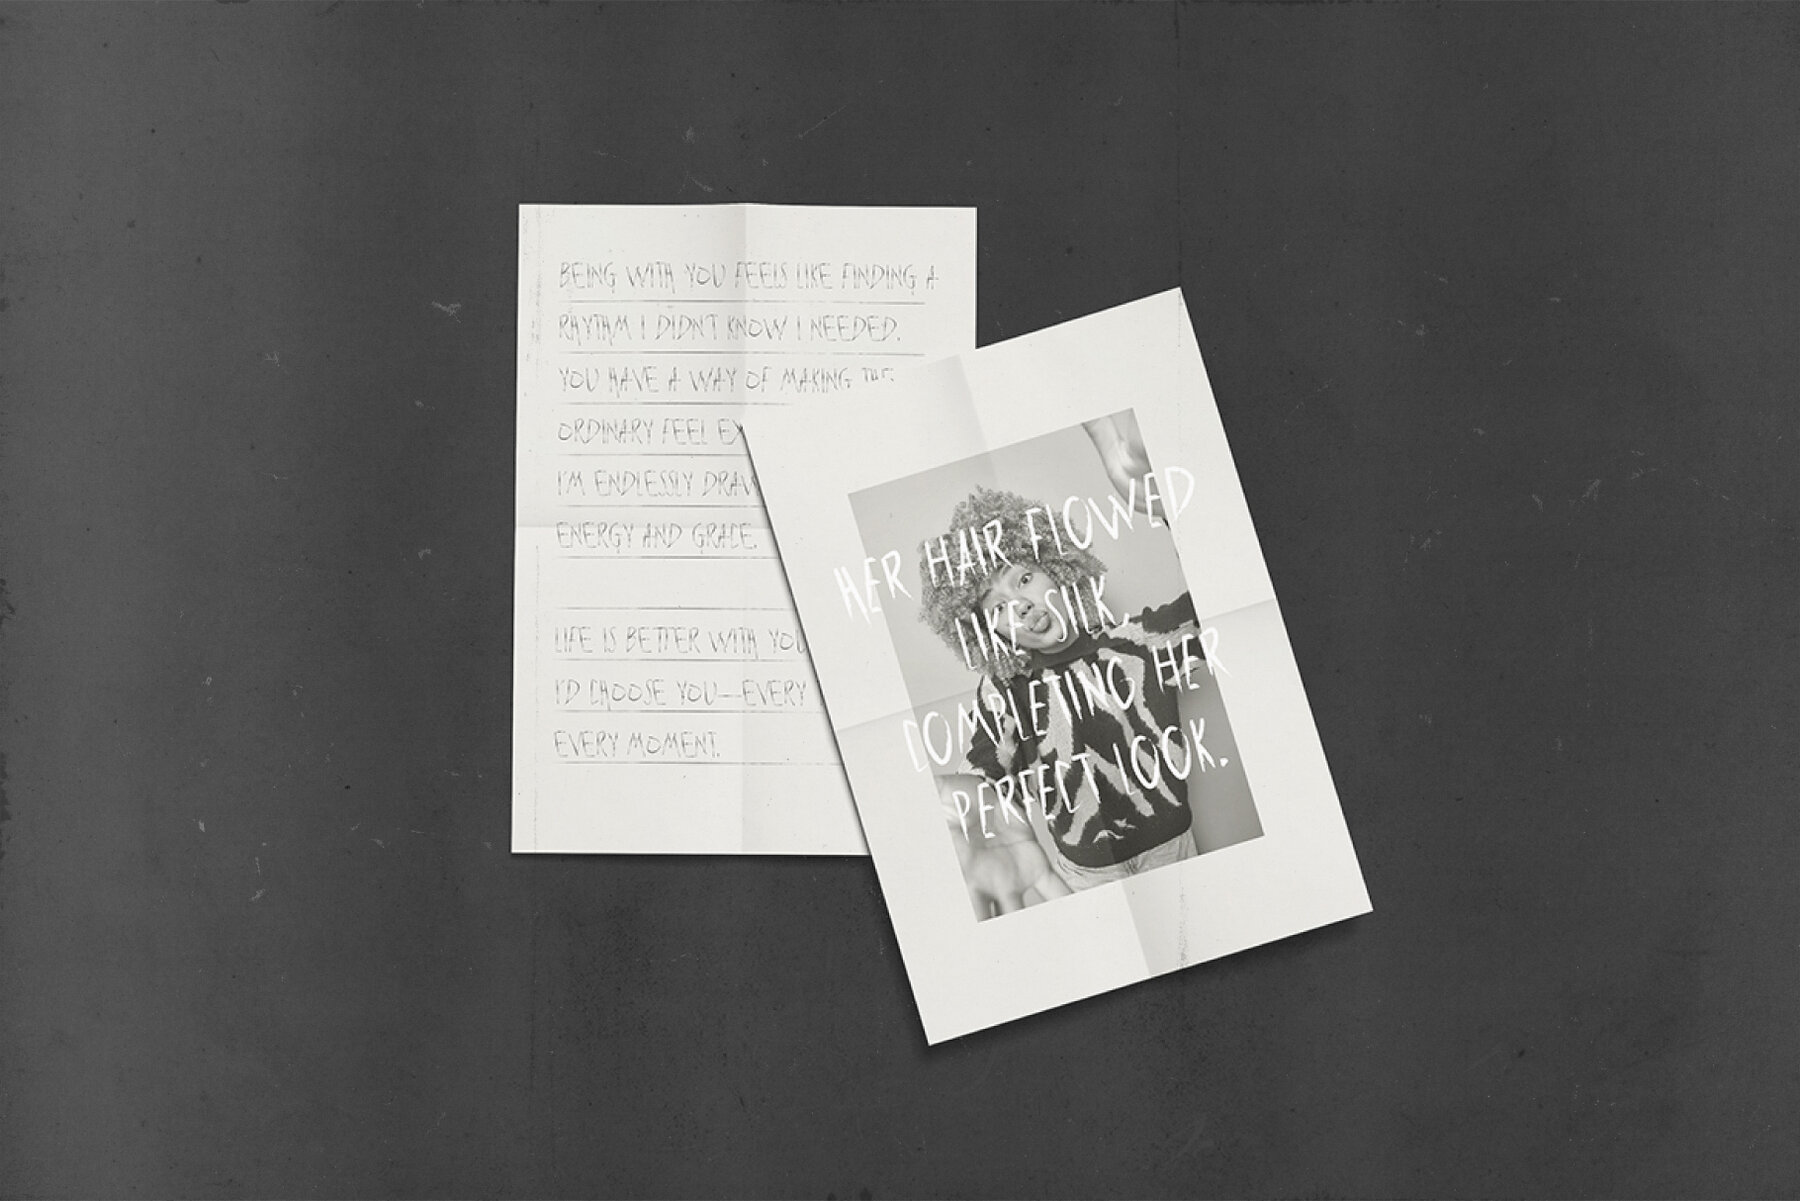 BEING WITH YOU FEELS LIKE FINDING A
RHYTHM I DIDN'T KNOW I NEEDED.
YOU HAVE A WAY OF MAKING THE
ORDINARY FEEL
I'M ENDLESSLY
ENERGY AND GRACE.
LIFE IS BETTER WITH YOU
I'D CHOOSE YOU—EVERY
EVERY MOMENT.
HER HAIR FLOWED
LIKE SILK,
COMPLETING HER
PERFECT LOOK.